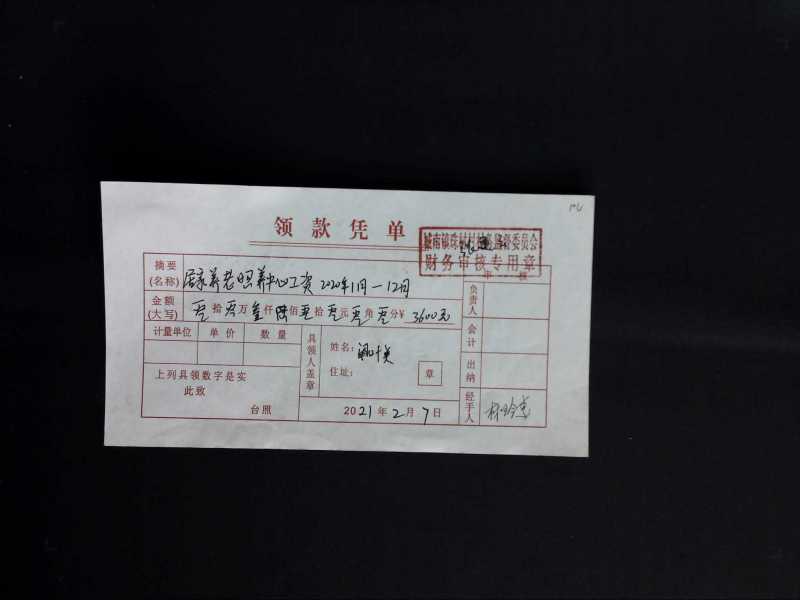 领款凭单
财务审核专用章
摘要
(名称) 居家养老照养中心工资 2020年1月-12月
金额
(大写) 零拾零万叁仟陆佰零拾零元零角零分¥ 3600元
计量单位 单价 数量
上列具领数字是实
此致
台照
具领人盖章
姓名:
住址:
章
2021年2月7日
负责人
会计
出纳
经手人